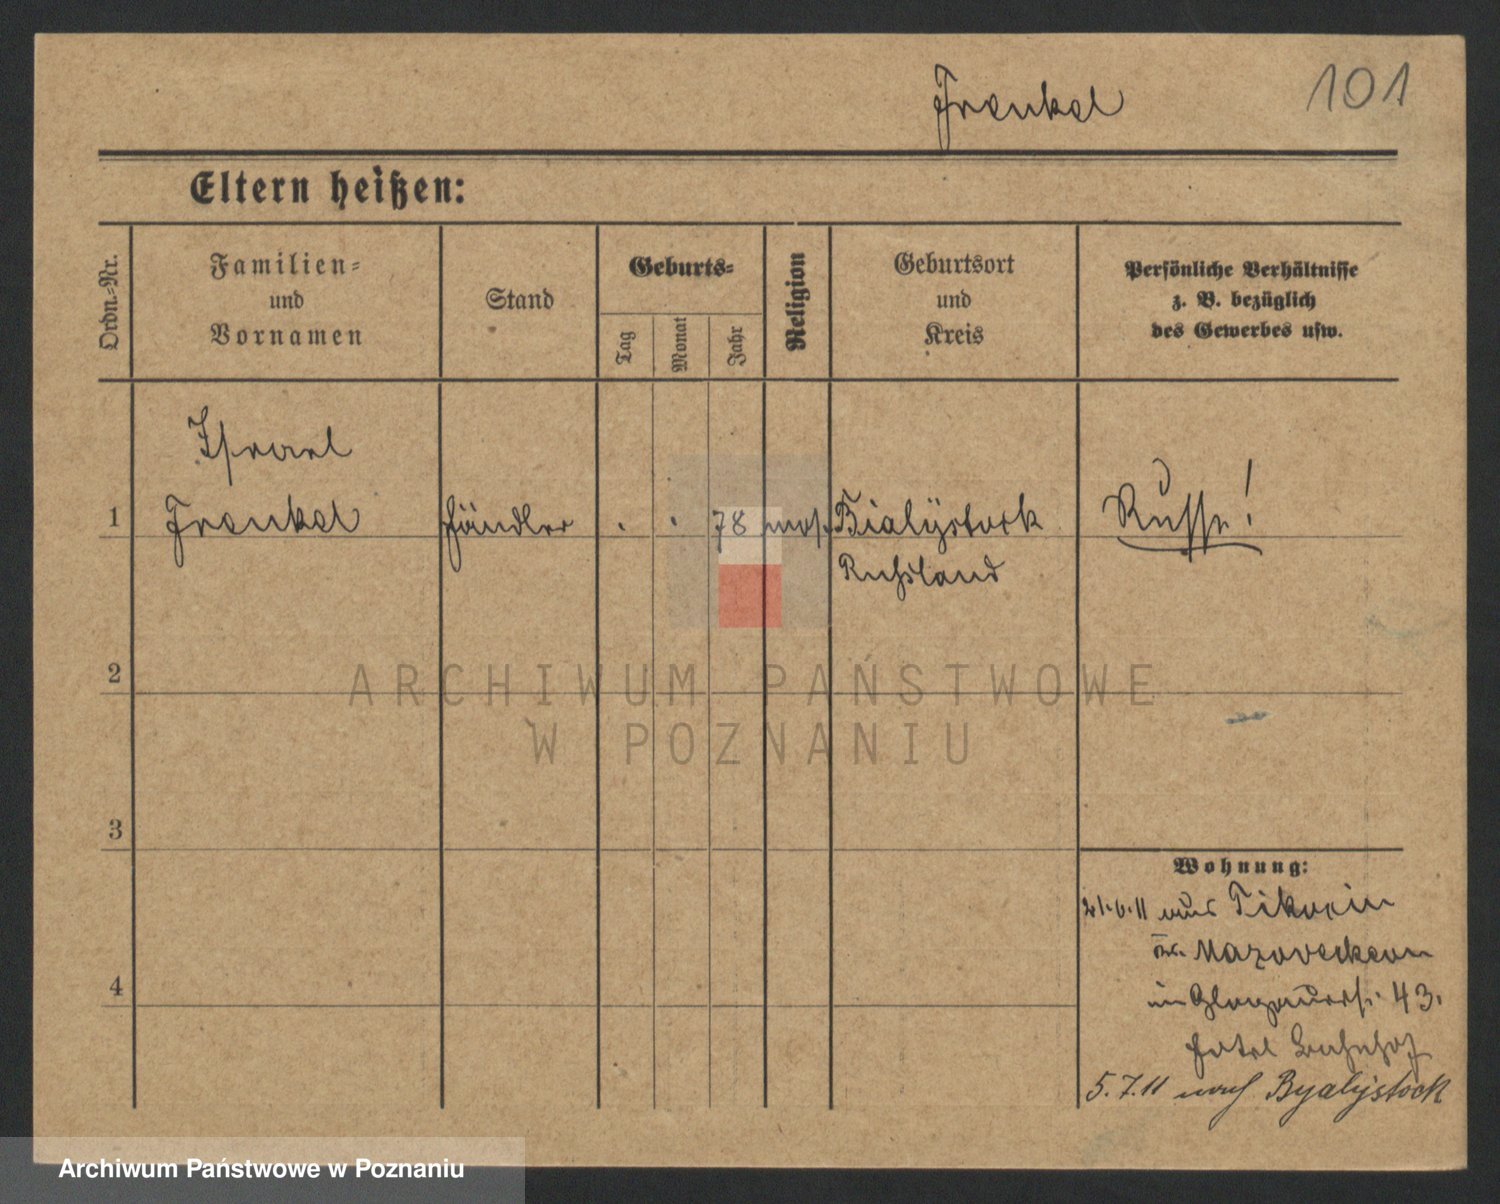 Frenkel
101
Eltern heißen:
Ordn.-Nr.
Familien-
und
Vornamen
Stand
Geburts-
Tag
Monat
Jahr
Religion
Geburtsort
und
Kreis
Persönliche Verhältnisse
z. B. bezüglich
des Gewerbes usw.
Israel
1 Frenkel Händler . . 78 mos. Bialÿstock Russe!
Russland
2
3
4
Wohnung:
21.6.11 aus
in Glogauerst. 43.
Hotel Bahnhof
5.7.11 nach Byalÿstock
ARCHIWUM PAŃSTWOWE
W POZNANIU
Archiwum Państwowe w Poznaniu